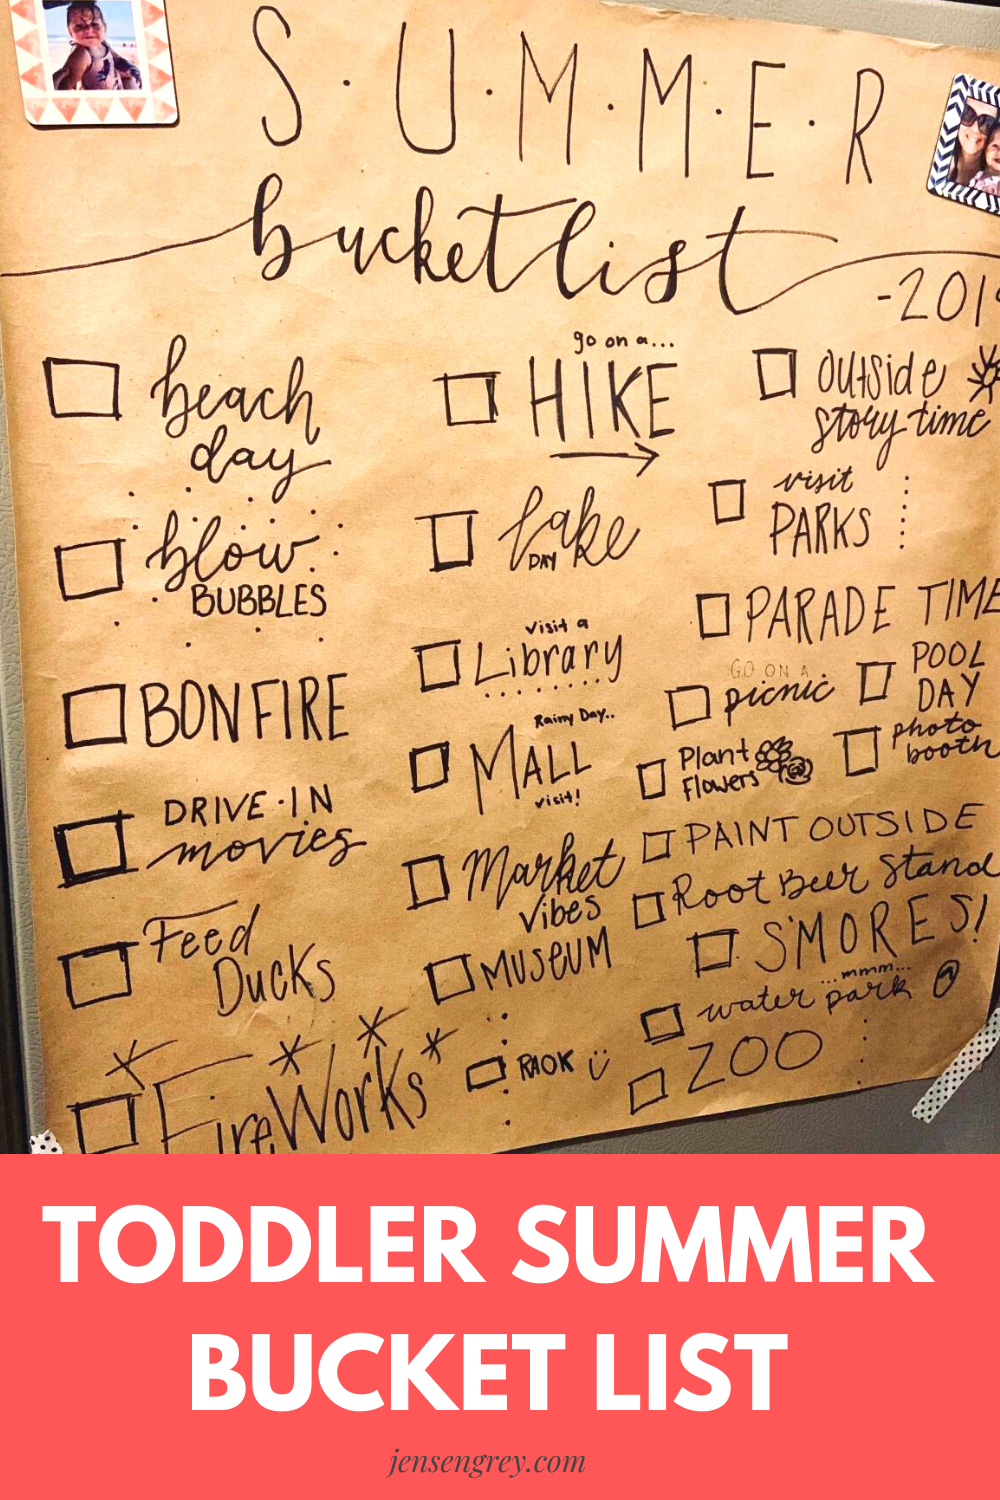 S·U·M·M·E·R
bucket list
-2019
beach
day
blow
BUBBLES
BONFIRE
DRIVE·IN
movies
Feed
DUCKS
FireWorks
go on a...
HIKE
lake
DAY
visit a
Library
Rainy Day..
MALL
visit!
Market
vibes
MUSEUM
RAOK
outside
story time
visit
PARKS
PARADE TIME
GO ON A
picnic
POOL
DAY
Plant
Flowers
photo
booth
PAINT OUTSIDE
Root Beer Stand
S'MORES!
...mmm...
water park
ZOO
TODDLER SUMMER
BUCKET LIST
jensengrey.com